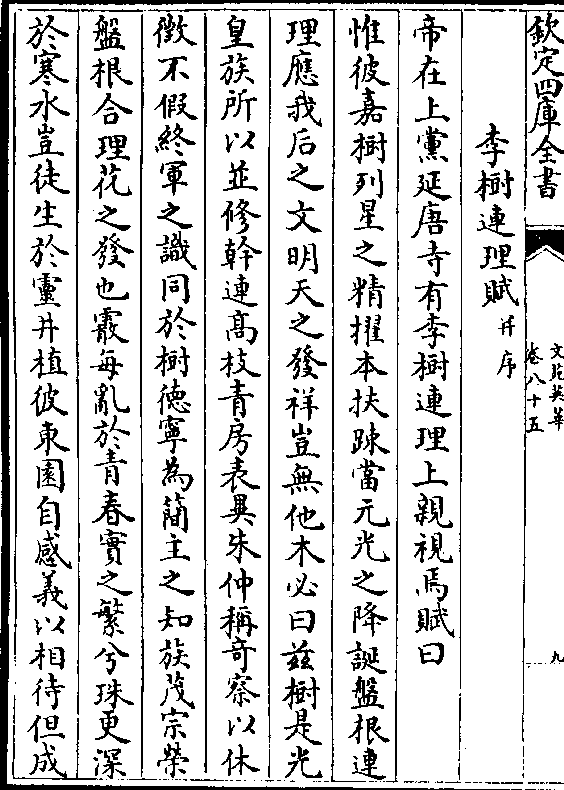 欽定四庫全書
文苑英華
卷八十五
九
李樹連理賦并序
帝在上黨延唐寺有李樹連理上親視焉賦曰
惟彼嘉樹列星之精擢本扶踈當元光之降誕盤根連
理應我后之文明天之發祥豈無他木必曰兹樹是光
皇族所以並修幹連髙枝青房表異朱仲稱竒察以休
徴不假終軍之識同於樹徳寧為簡主之知族茂宗榮
盤根合理花之發也霰每亂於青春實之繁兮珠更深
於寒水豈徒生於靈井植彼東園自感義以相待但成